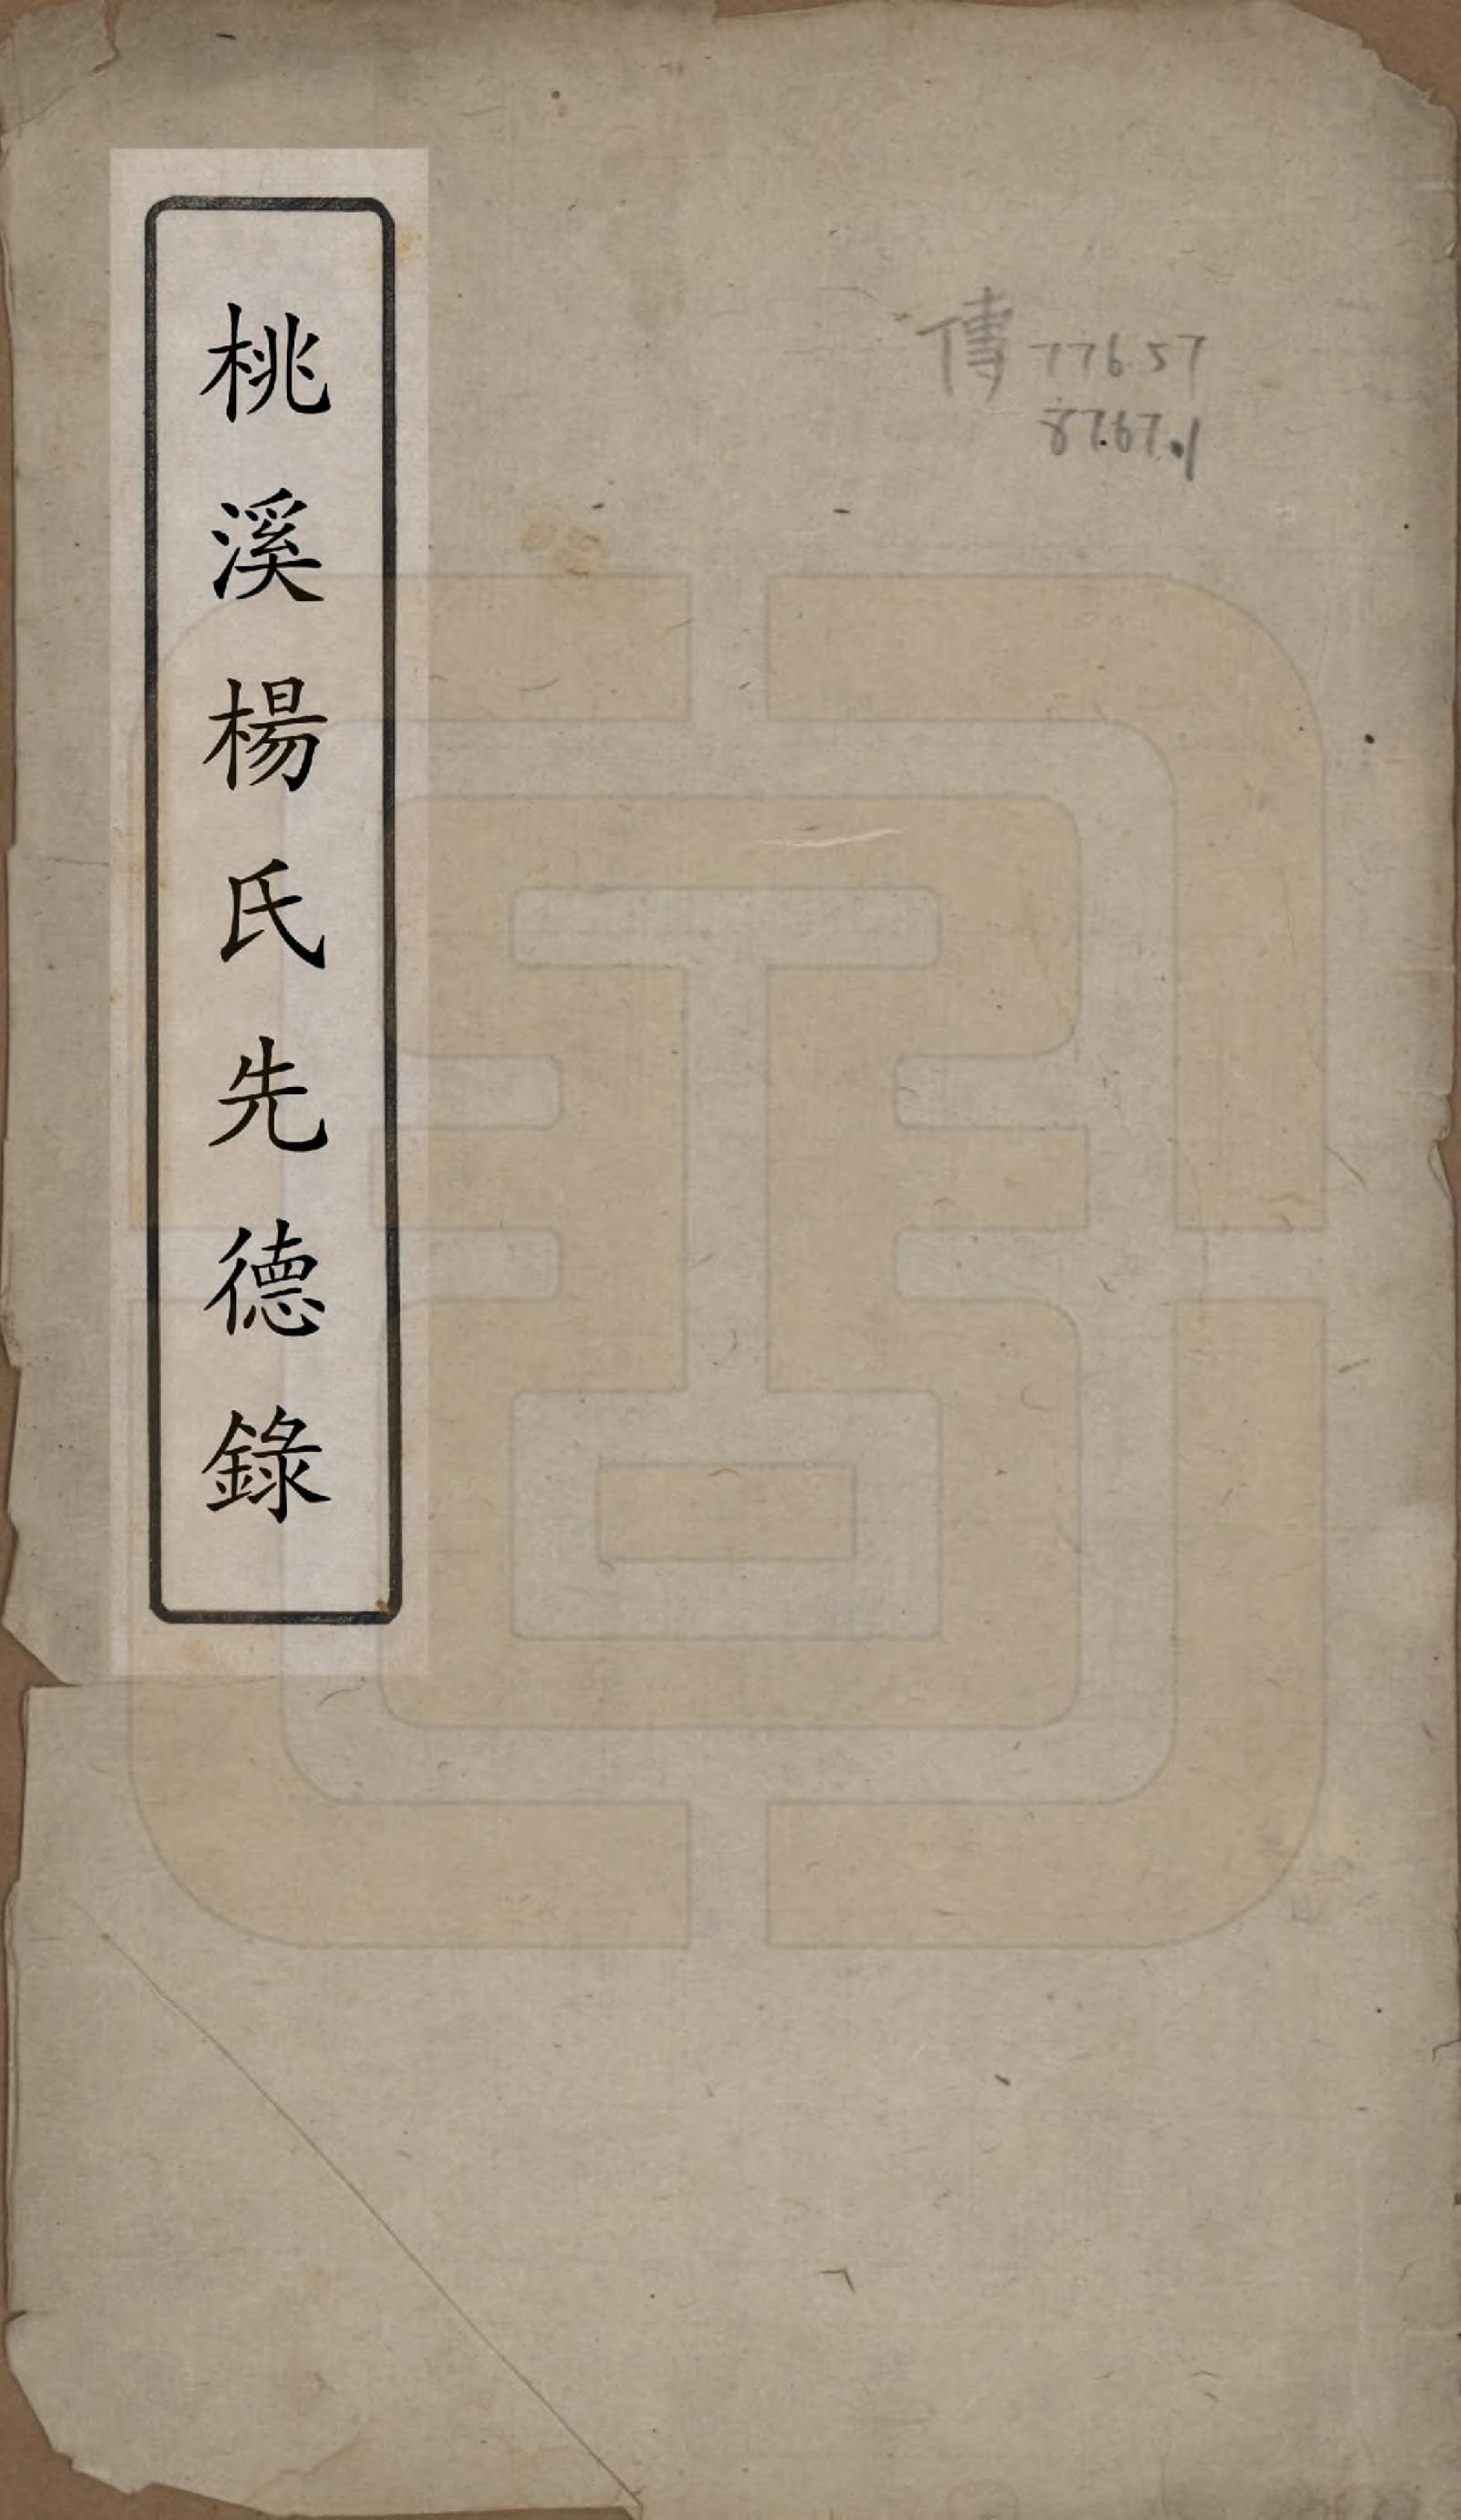 傳 776.57
8767.1
桃溪楊氏先德錄